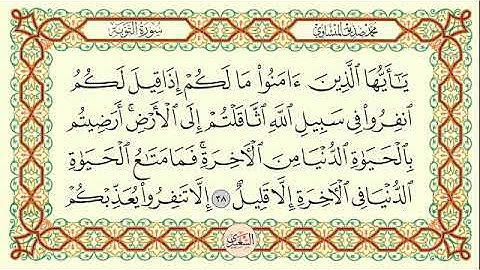 محمد صديق المنشاوي
سورة التوبة
يَـٰٓأَيُّهَا ٱلَّذِينَ ءَامَنُوا۟ مَا لَكُمْ إِذَا قِيلَ لَكُمُ
ٱنفِرُوا۟ فِى سَبِيلِ ٱللَّهِ ٱثَّاقَلْتُمْ إِلَى ٱلْأَرْضِ ۚ أَرَضِيتُم
بِٱلْحَيَوٰةِ ٱلدُّنْيَا مِنَ ٱلْـَٔاخِرَةِ ۚ فَمَا مَتَـٰعُ ٱلْحَيَوٰةِ
ٱلدُّنْيَا فِى ٱلْـَٔاخِرَةِ إِلَّا قَلِيلٌ ٣٨ إِلَّا تَنفِرُوا۟ يُعَذِّبْكُمْ